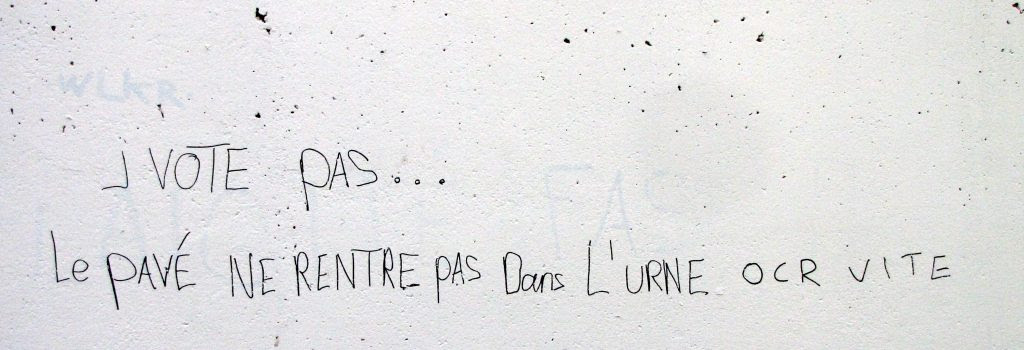 WLKR.
J VOTE PAS...
Le PAVÉ NE RENTRE PAS Dans L'URNE OCR VITE